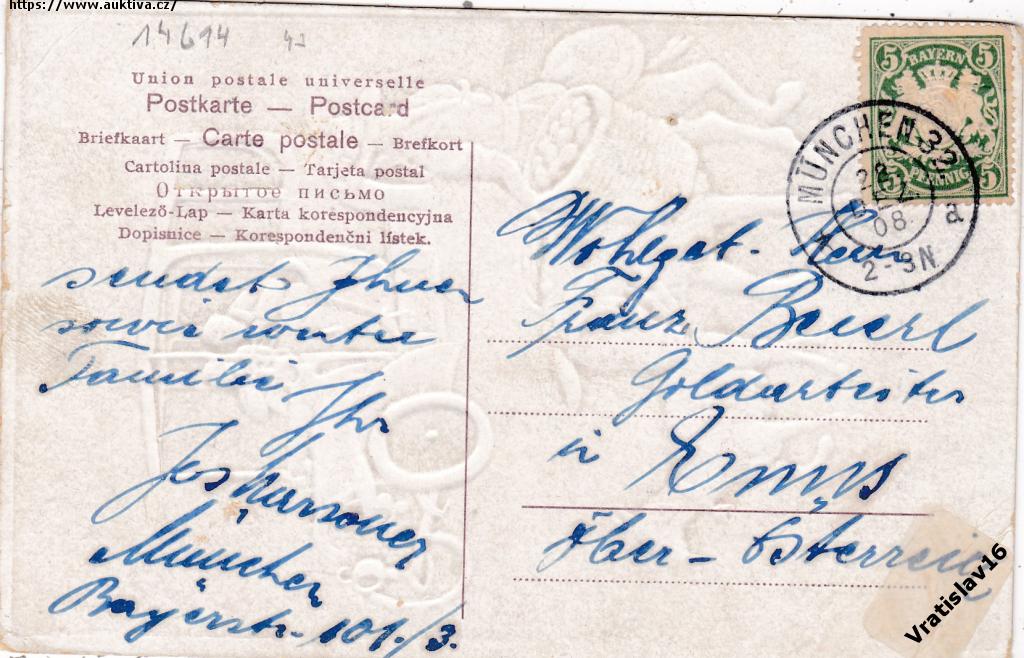 https://www.auktiva.cz/
14614
Union postale universelle
Postkarte — Postcard
Briefkaart — Carte postale — Brefkort
Cartolina postale — Tarjeta postal
Открытое письмо
Levelező-Lap — Karta korespondencyjna
Dopisnice — Korespondenčni lístek.
sendet Ihnen
sowie werter
Familie Ihr
Jos
München
Bayerstr. 101./3.
5 BAYERN 5
5 PFENNIG 5
MÜNCHEN 32
08.
2-3N
a
Wohlgeb. Herrn
Franz Beierl
Goldarbeiter
in Enns
Ober-Österreich
Vratislav16